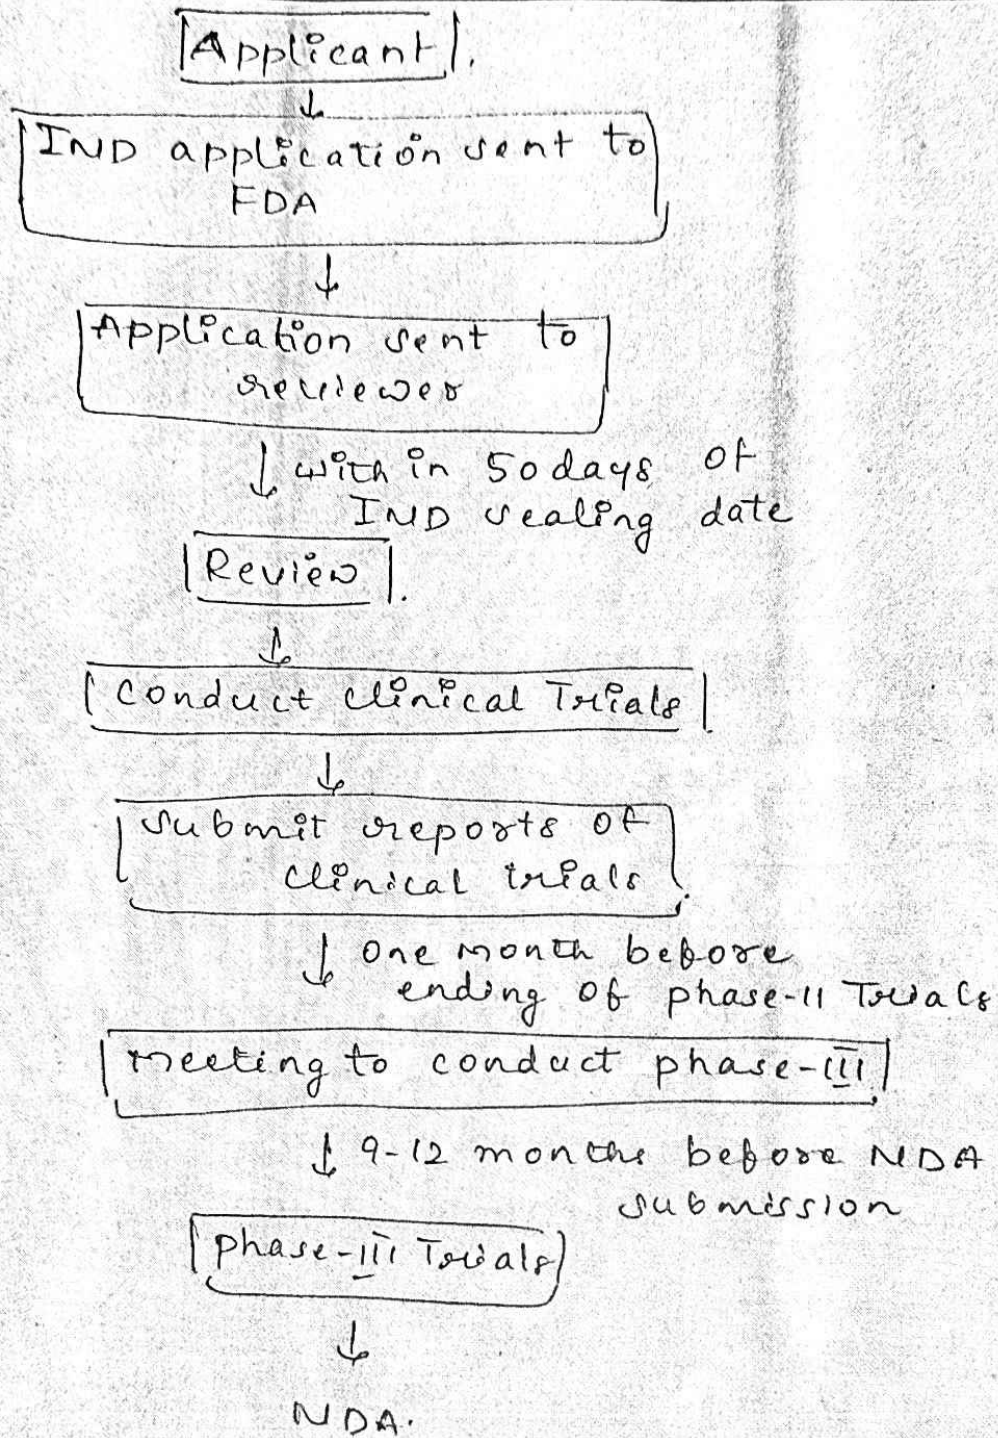 Applicant.
IND application sent to
FDA
Application sent to
reviewer
with in 50 days of
IND sealing date
Review.
Conduct Clinical Trials
Submit reports of
clinical trials.
One month before
ending of phase-II Trials
Meeting to conduct phase-III
9-12 months before NDA
submission
phase-III Trials
NDA.